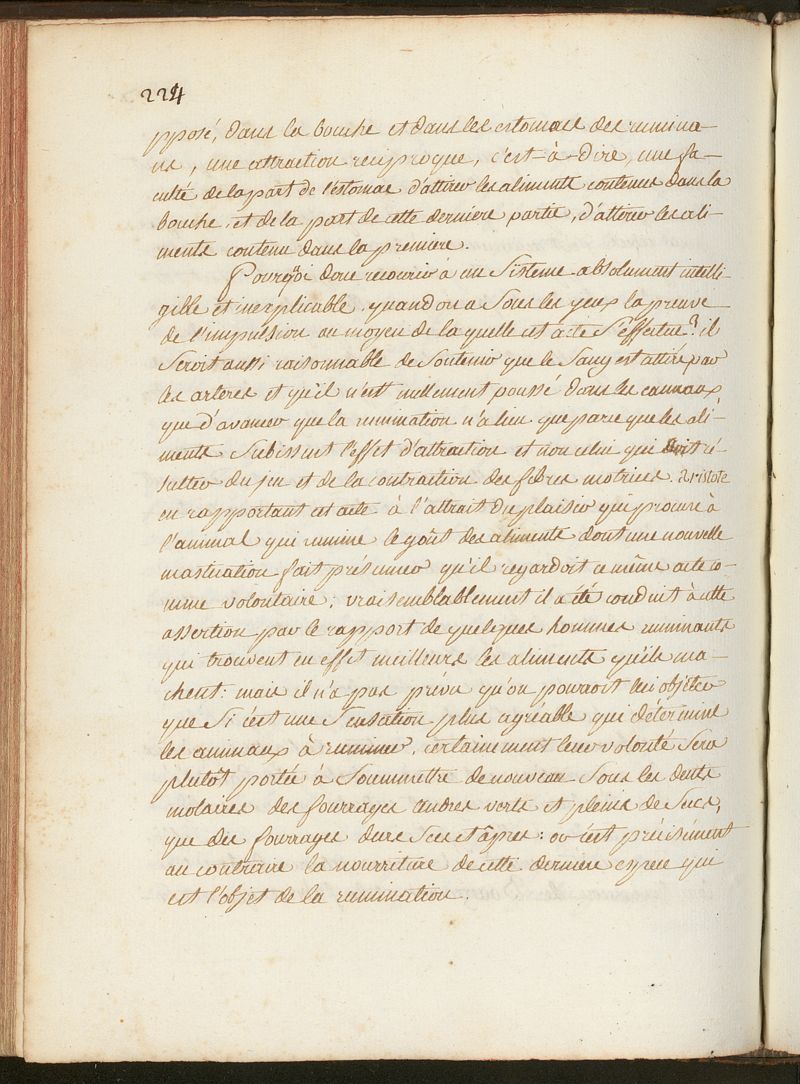 224
pposé, dans la bouche et dans les estomacs des rumina-
ns, une attraction reciproque, c'est-à-dire, une fa-
culté de la part de l'estomac d'attirer les aliments contenus dans la
bouche, et de la part de cette derniere partie, d'attirer les ali-
ments contenu dans la premiere.
Pourquoi donc recourir à un Sisteme absolument intelli-
gible et inexplicable, quand on a Sous les yeux la preuve
de l'impulsion au moyen de la quelle cet acte S'effectue? il
Seroit aussi raisonnable de Soutenir que le Sang est attiré par
les arteres et qu'il n'est nullement poussé dans les cannaux,
que d'avancer que la rumination n'a lieu que parce que les ali-
ments Subissent l'effet d'attraction et non celui qui doit ré-
sulter du jeu et de la contraction des fibres motrices. aristote
en rapportant cet acte à l'attrait du plaisir que procure à
l'animal qui rumine le goût des aliments dont une nouvelle
mastication fait présumer qu'il regardoit ce même acte co-
mme volontaire; vraisemblablement il a été conduit à cette
assertion par le rapport de quelques hommes ruminants
qui trouvent en effet meilleurs les aliments qu'ils ma-
chent: mais il n'a pas prévu qu'on pouvoit lui objecter
que Si c'est une Sensation plus agréable qui détermine
les animaux à ruminer, certainement leur volonté Sera
plutôt portée à Soummettre de nouveau Sous les dents
molaires des fourrages tendres verts et pleins de Sucs,
que des fourrages durs Secs et âpres: or c'est précisément
au contraire la nourriture de cette derniere espece qui
est l'objet de la rumination.